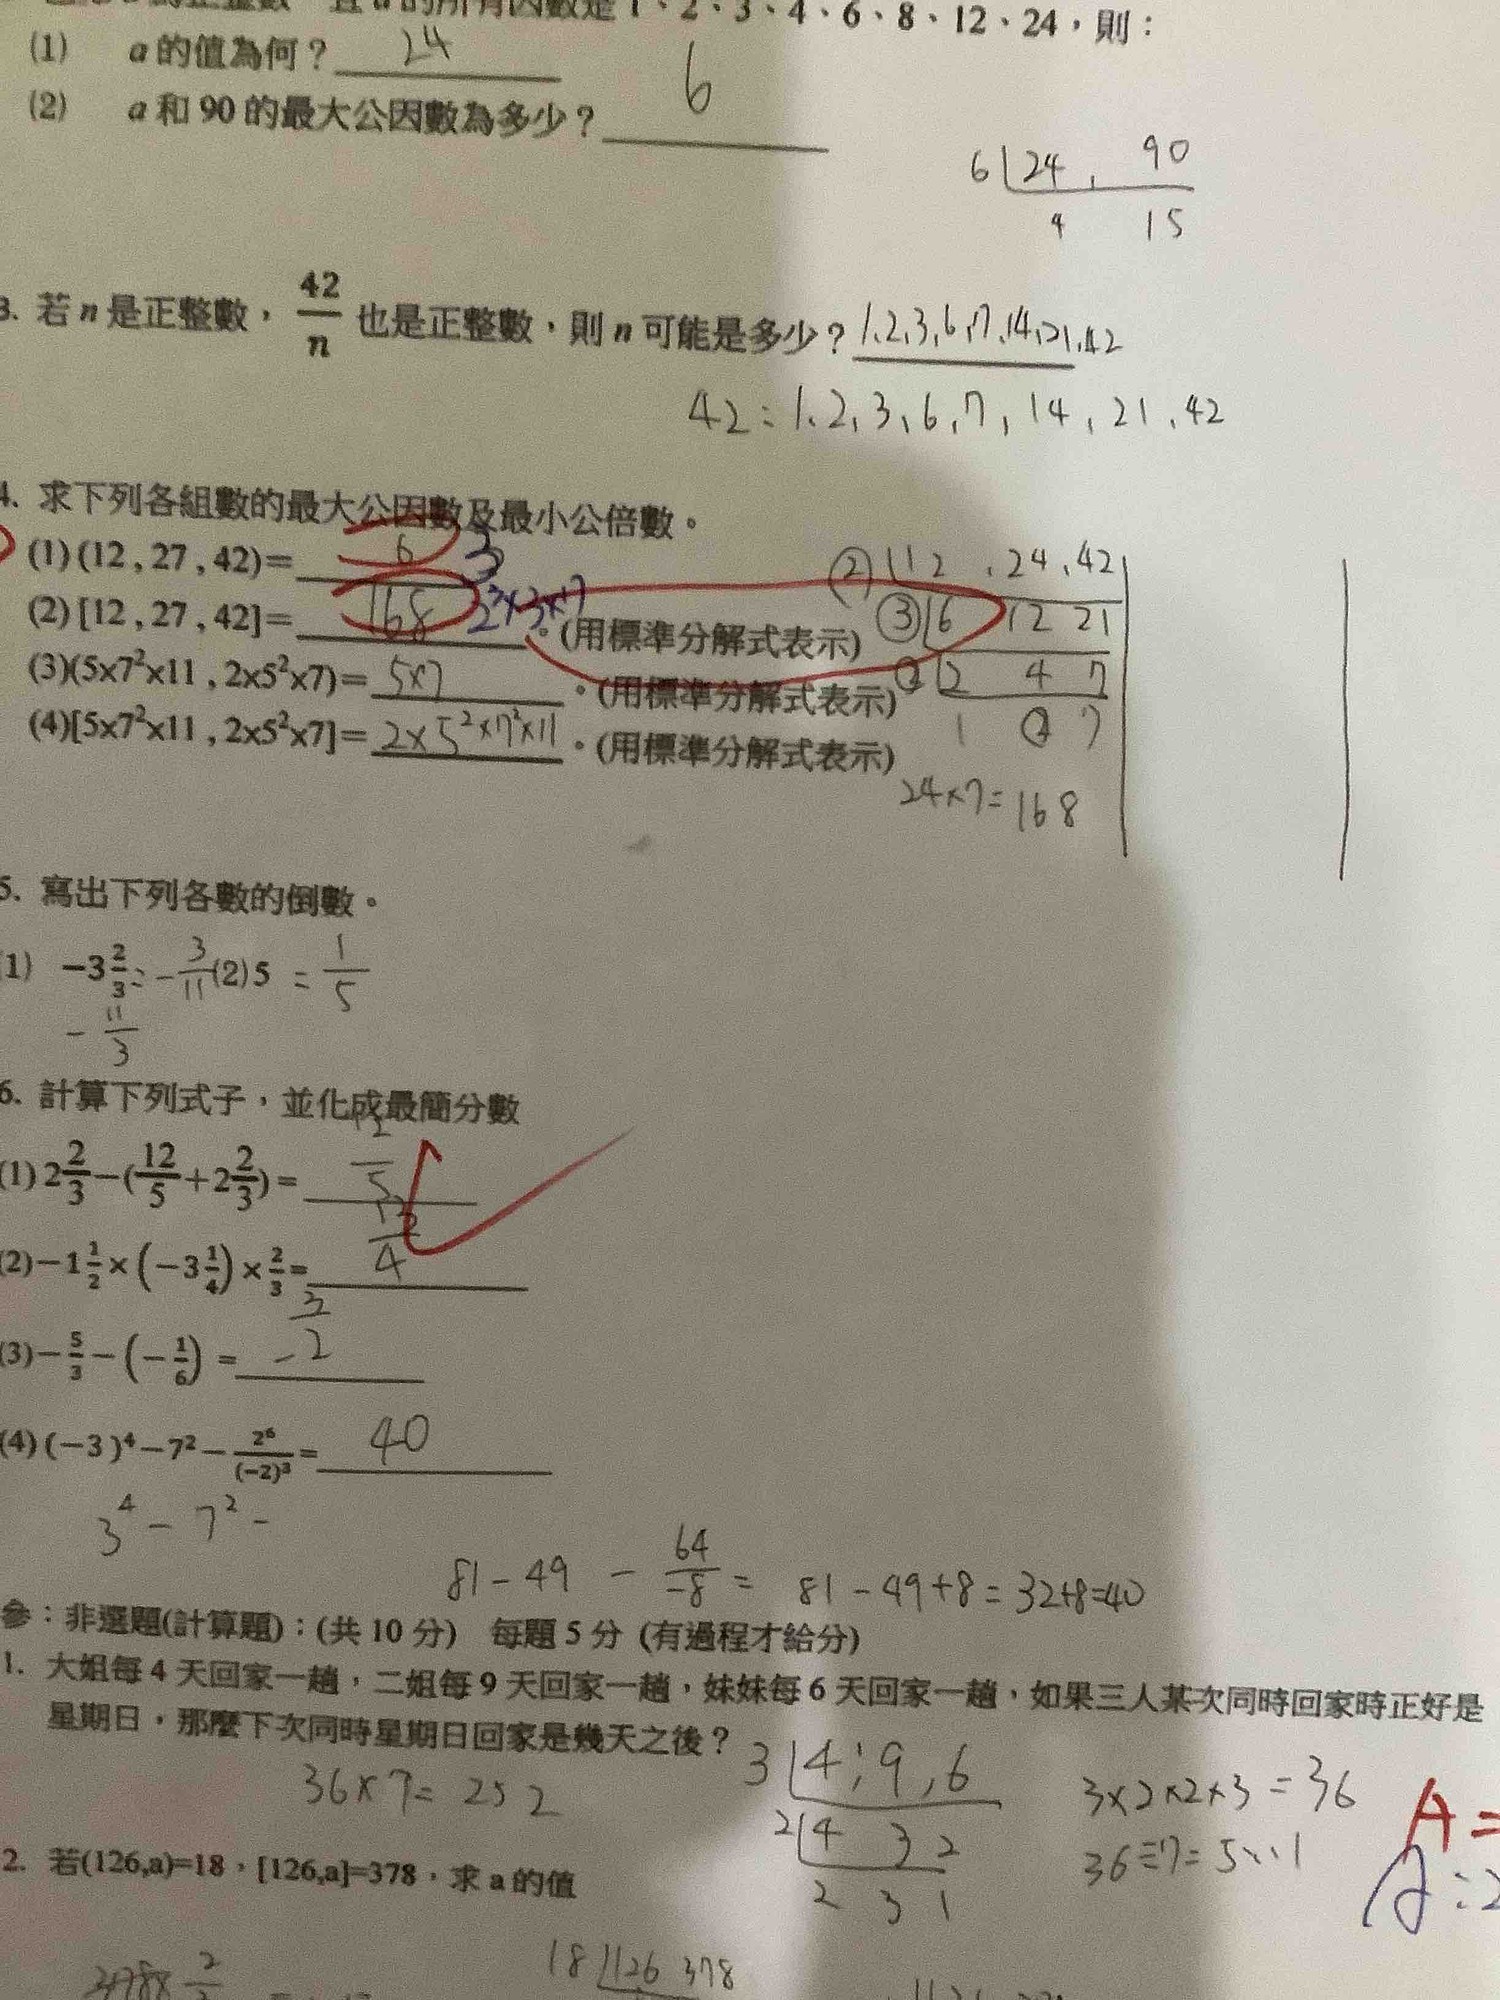 的所有因數是 1、2、3、4、6、8、12、24，則：
(1) a 的值為何？ 24
(2) a 和 90 的最大公因數為多少？ 6
6 24 , 90
4 15
3. 若 n 是正整數， 42/n 也是正整數，則 n 可能是多少？ 1,2,3,6,7,14,21,42
42 = 1,2,3,6,7,14,21,42
4. 求下列各組數的最大公因數及最小公倍數。
(1) (12 , 27 , 42)= 6 3
② 12 , 24 , 42
(2) [12 , 27 , 42]= 168 。(用標準分解式表示)
③ 6 12 21
(3)(5x7²x11 , 2x5²x7)= 5x7 。(用標準分解式表示)
2 4 7
(4)[5x7²x11 , 2x5²x7]= 2x5²x7²x11 。(用標準分解式表示)
1 ② 7
24x7=168
5. 寫出下列各數的倒數。
(1) −3 2/3 = -3/11 (2) 5 = 1/5
- 11/3
6. 計算下列式子，並化成最簡分數
(1) 2 2/3 −( 12/5 +2 2/3 )= 12/5
(2)−1 1/2 × (−3 1/4) × 2/3 = 13/4
(3)− 5/3 − (− 1/6) = -3/2
(4) (−3 )⁴−7²− 2⁶/(−2)³ = 40
3⁴ - 7² -
81-49 - 64/-8 = 81-49+8=32+8=40
參：非選題(計算題)：(共 10 分) 每題 5 分 (有過程才給分)
1. 大姐每 4 天回家一趟，二姐每 9 天回家一趟，妹妹每 6 天回家一趟，如果三人某次同時回家時正好是
星期日，那麼下次同時星期日回家是幾天之後？
3 4,9,6
36x7=252
3x2x2x3=36
2 4 3 2
36÷7=5...1
2 3 1
A=
2. 若(126,a)=18，[126,a]=378，求 a 的值
18 126 378